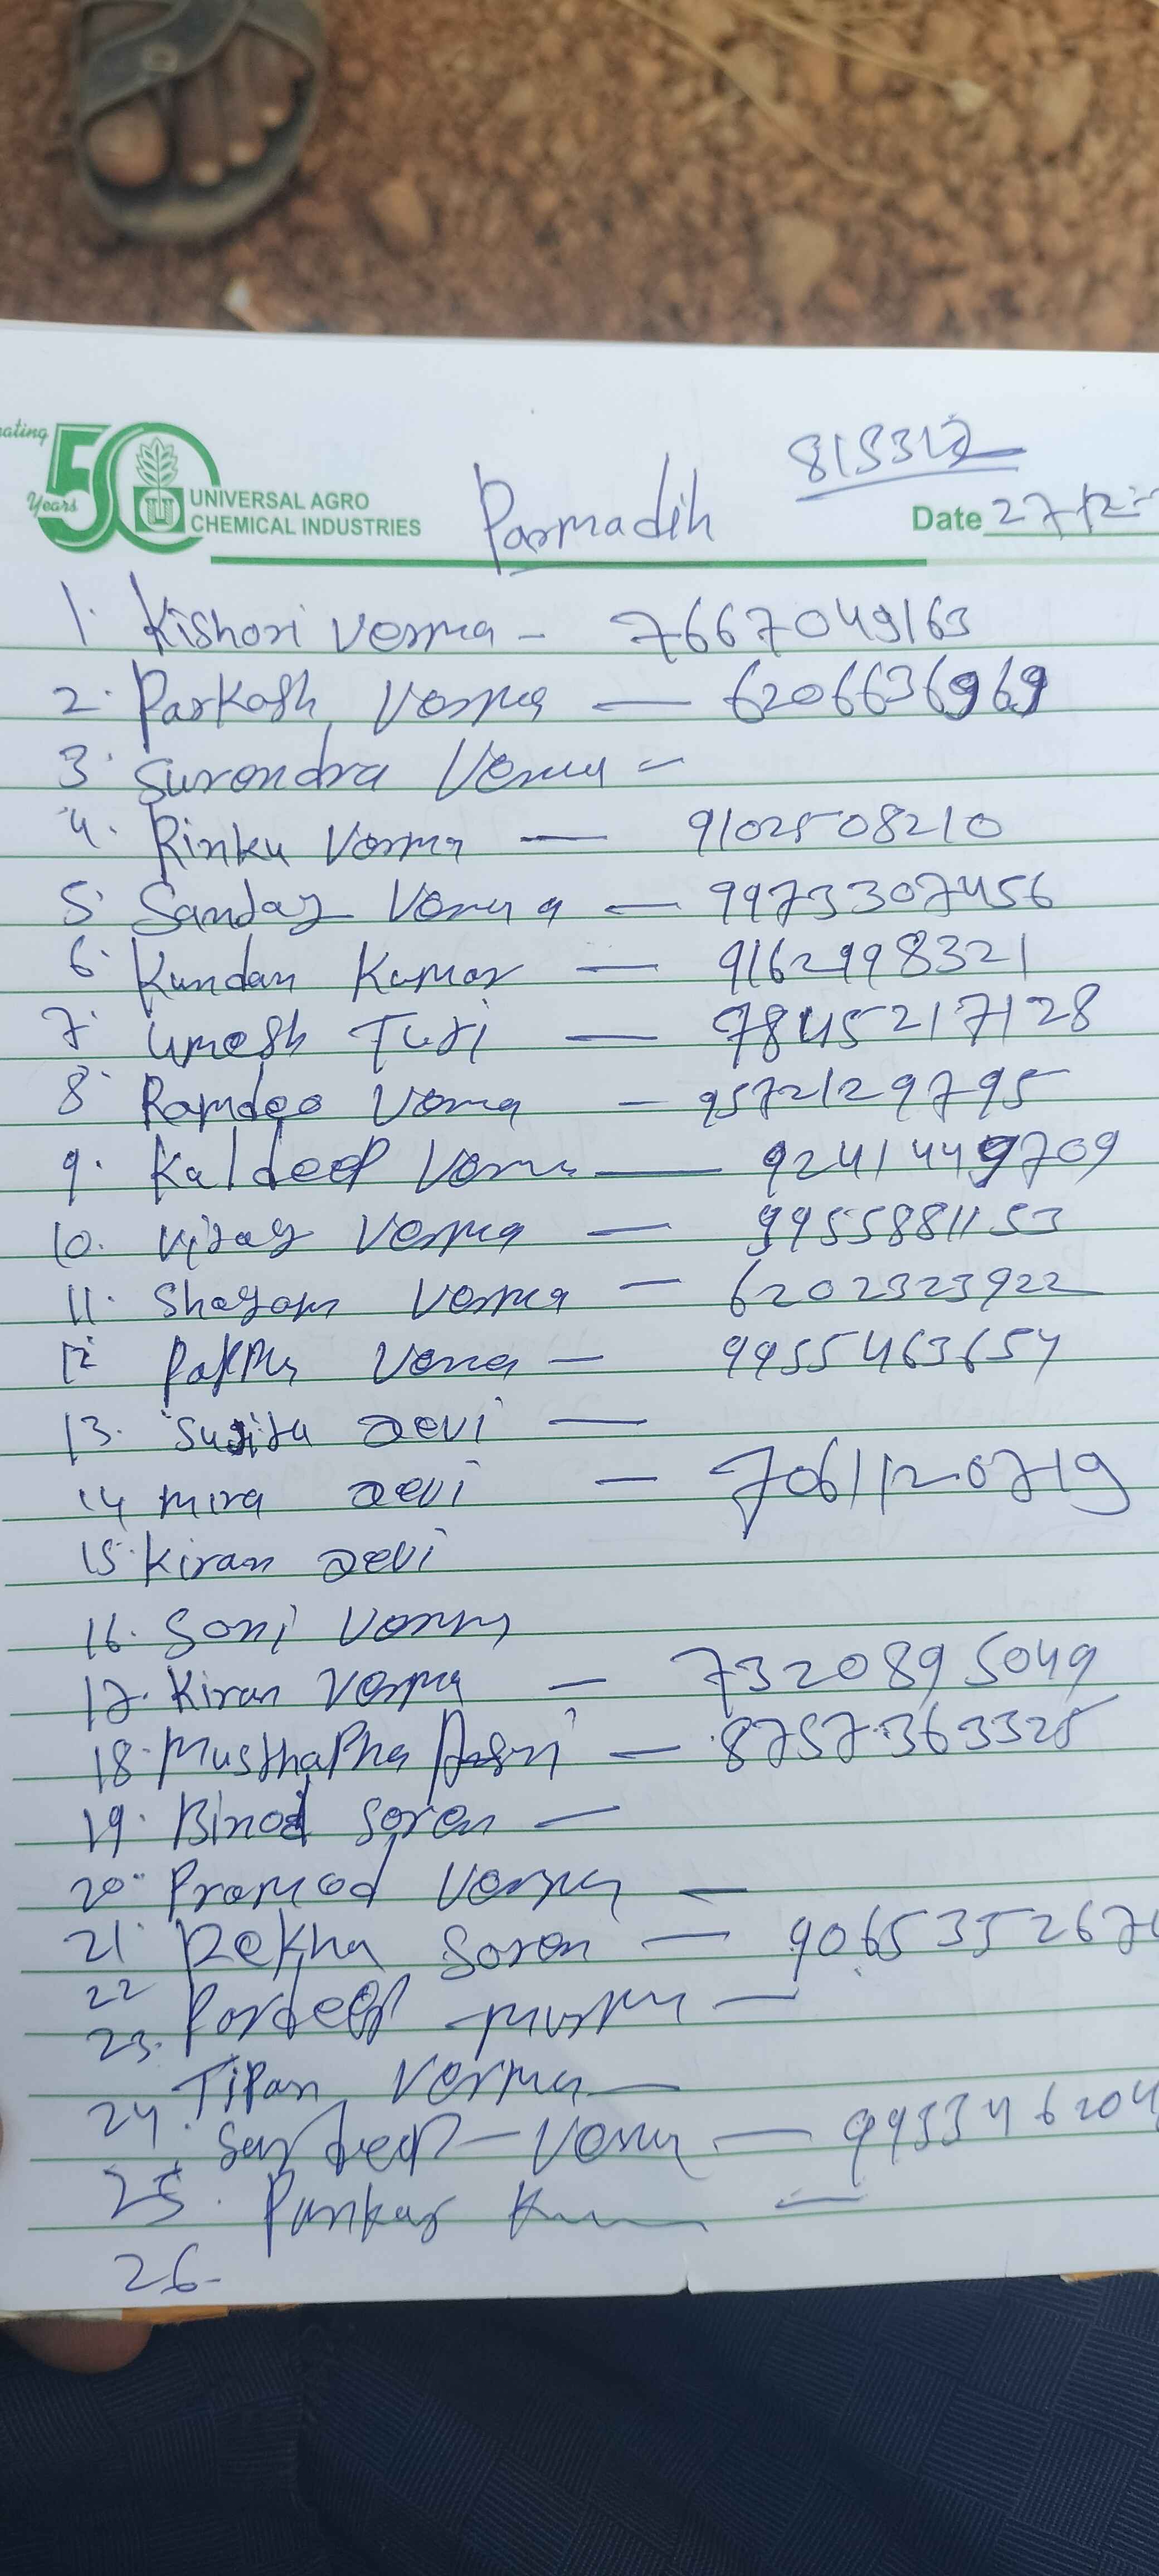 ating
50
Years
UNIVERSAL AGRO
CHEMICAL INDUSTRIES
Parmadih
815312
Date 27/12
1. Kishori Verma - 7667049163
2. Parkash Verma — 6206636969
3. Surendra Verma -
4. Rinku Verma — 9102508210
5. Sanjay Verma — 9973307456
6. Kundan Kumar — 9162998321
7. Umesh Turi — 7845217128
8. Ramdeo Verma - 9572129795
9. Kaldeep Verma — 9241449709
10. Vijay Verma — 9955881153
11. Shayam Verma — 6202323922
12. Pappu Verma — 9955463654
13. Devi —
14 Mira Devi — 7061120719
15. Kiran Devi
16. Soni Verma
17. Kiran Verma — 7320895049
18. Musthapha — 8757363325
19. Binod Soren —
20. Pramod Verma —
21. Rekha Soren — 906535267
22 Pardeep —
23. Tipan Verma —
24. Verma —
25. Pankaj
26.